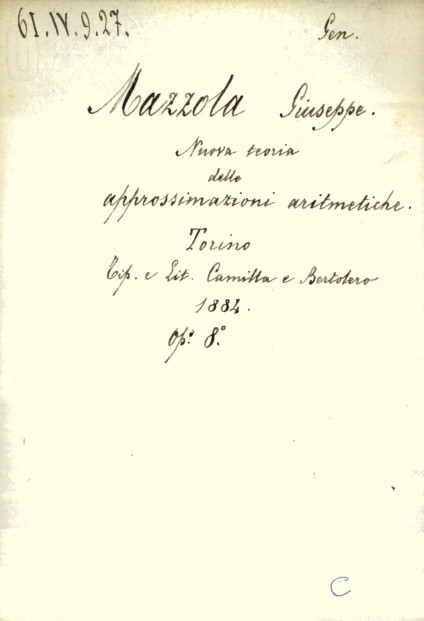 61.IV.9.27.
Gen.
Mazzola Giuseppe.
Nuova teoria
delle
approssimazioni aritmetiche.
Torino
Tip. e Lit. Camilla e Bertolero
1884.
Op.º 8.º
C